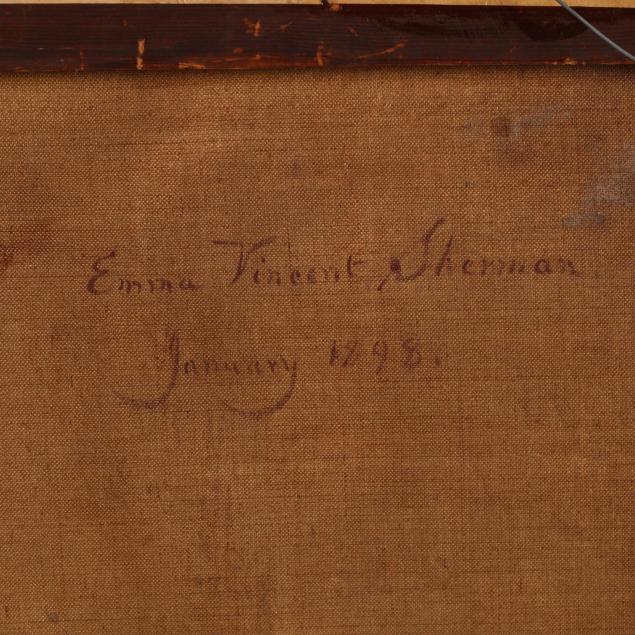 Emma Vincent Sherman.
January 1898.